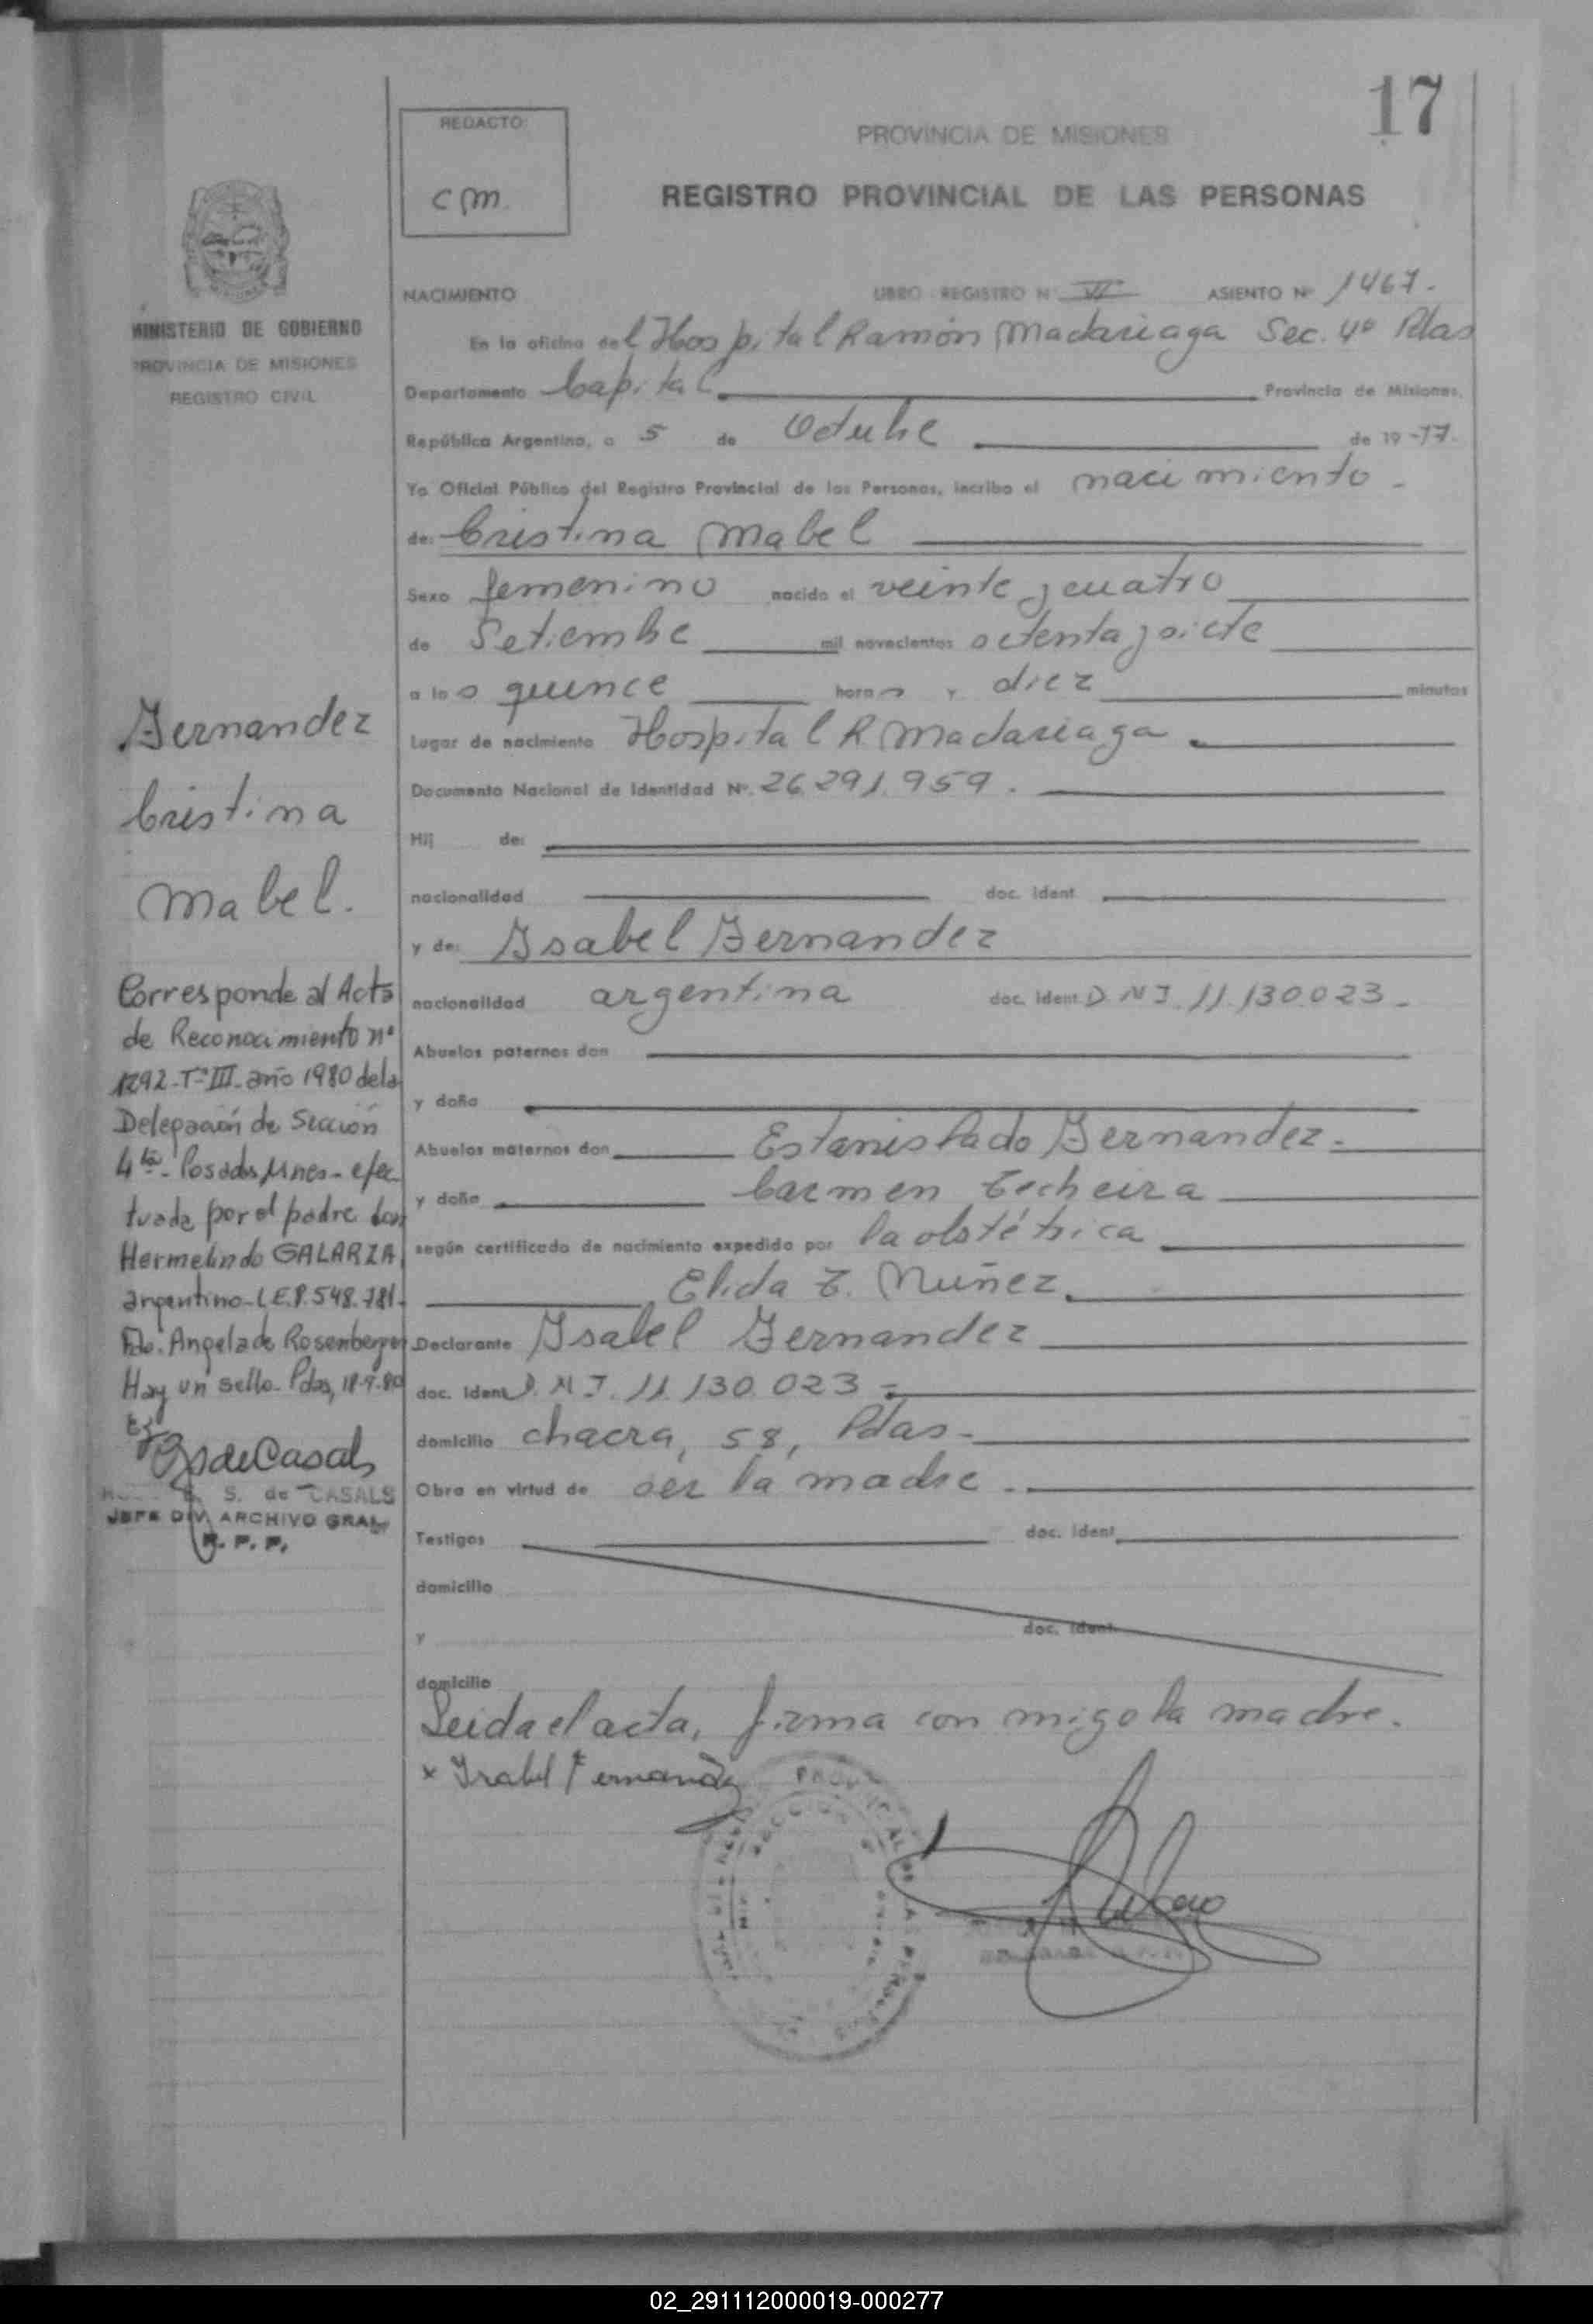 17
REDACTO:
cm.
PROVINCIA DE MISIONES
REGISTRO PROVINCIAL DE LAS PERSONAS
MINISTERIO DE GOBIERNO
PROVINCIA DE MISIONES
REGISTRO CIVIL
NACIMIENTO LIBRO REGISTRO Nº VIº ASIENTO Nº 1467.
En la oficina del Hospital Ramón Madariaga Sec. 4º Pdas
Departamento Capital. Provincia de Misiones.
República Argentina, a 5 de Octubre de 19-77.
Yo Oficial Público del Registro Provincial de las Personas, incribo el nacimiento.
de: Cristina Mabel
Sexo femenino nacido el veinte y cuatro
de Setiembre mil novecientos setenta y siete
a las quince horas y diez minutos
Lugar de nacimiento Hospital R Madariaga.
Documento Nacional de Identidad Nº. 26.291.959.
Hij de:
nacionalidad doc. ident
y de: Isabel Fernandez
nacionalidad argentina doc. ident. D N I. 11.130.023.
Abuelos paternos don
y doña
Abuelos maternos don Estanislado Fernandez.
y doña Carmen Techeira
según certificado de nacimiento expedido por la obstétrica
Elida T. Nuñez.
Declarante Isabel Fernandez
doc. ident D. N I. 11.130.023
domicilio chacra, 58, Pdas.
Obra en virtud de ser la madre.
Testigos doc. ident
domicilio
y doc. ident
domicilio
Leida el acta, firma con migo la madre.
x Isabel Fernandez
Fernandez
Cristina
Mabel.
Corresponde al Acta
de Reconocimiento nº
1292-Tº III-año 1980 de la
Delegación de Sección
4ta- Posadas Mnes- efec
tuada por el padre don
Hermelindo GALARZA,
argentino-L.E.8.548.781-
Fdo. Angela de Rosenberger
Hay un sello- Pdas, 18-9-80
S. de CASALS
JEFE DIV. ARCHIVO GRAL.
R. P. P.
02_291112000019-000277